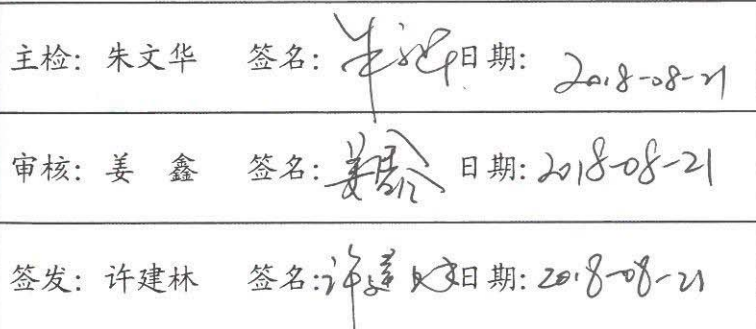 主检: 朱文华 签名: 朱文华 日期: 2018-08-21
审核: 姜 鑫 签名: 姜鑫 日期: 2018-08-21
签发: 许建林 签名: 许建林 日期: 2018-08-21